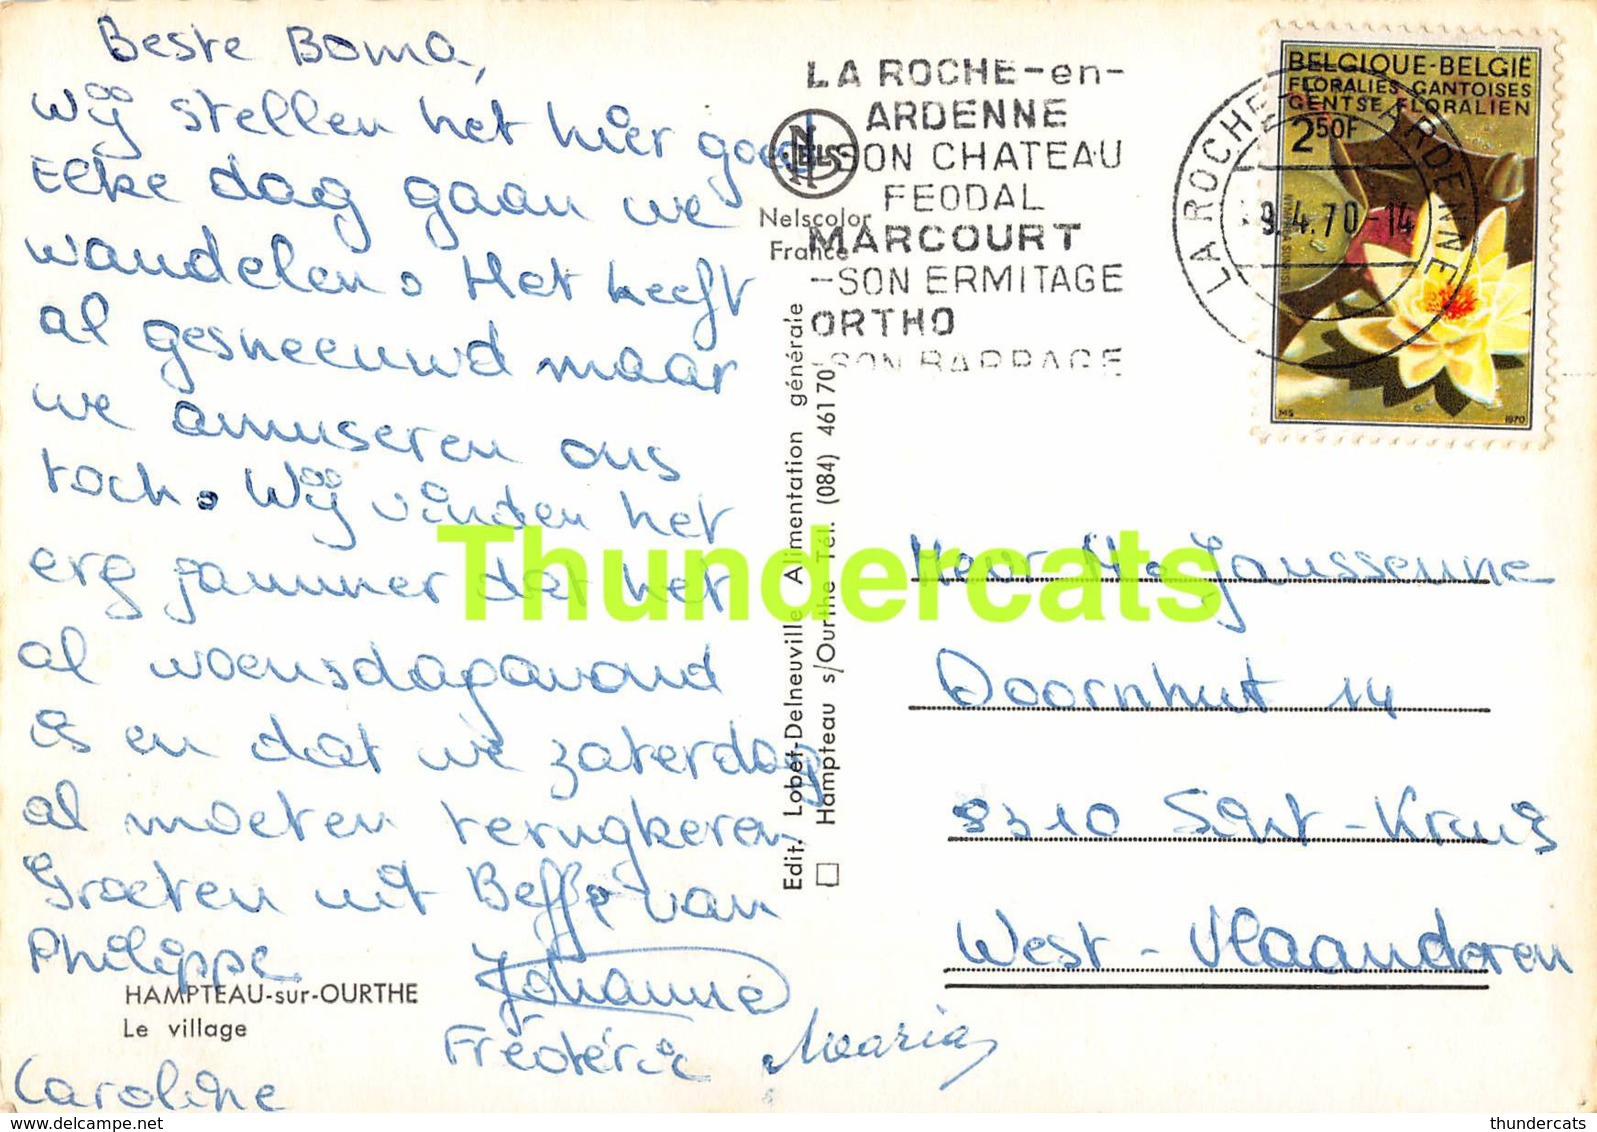 Beste Boma,
Wij stellen het hier goed
Elke dag gaan we
wandelen. Het heeft
al gesneeuwd maar
we amuseren ons
toch. Wij vinden het
erg jammer dat het
al woensdagavond
is en dat we zaterdag
al moeten terugkeren
Groeten uit Beffe van
Philippe
Johanne
Fréderic
Maria
Caroline
HAMPTEAU-sur-OURTHE
Le village
NELS
Nelscolor
France
Edit. Lobet-Delneuville Alimentation générale
Hampteau s/Ourthe Tél. (084) 461 70
LA ROCHE-en-
ARDENNE
-SON CHATEAU
FEODAL
MARCOURT
-SON ERMITAGE
ORTHO
-SON BARRAGE
LA ROCHE-EN-ARDENNE
9.4.70-14
BELGIQUE-BELGIË
FLORALIES GANTOISES
GENTSE FLORALIEN
2 50F
MS
1970
Heer M. Janssenne
Doornhut 14
8310 Sint-Kruis
West-Vlaanderen
Thundercats
thundercats
www.delcampe.net